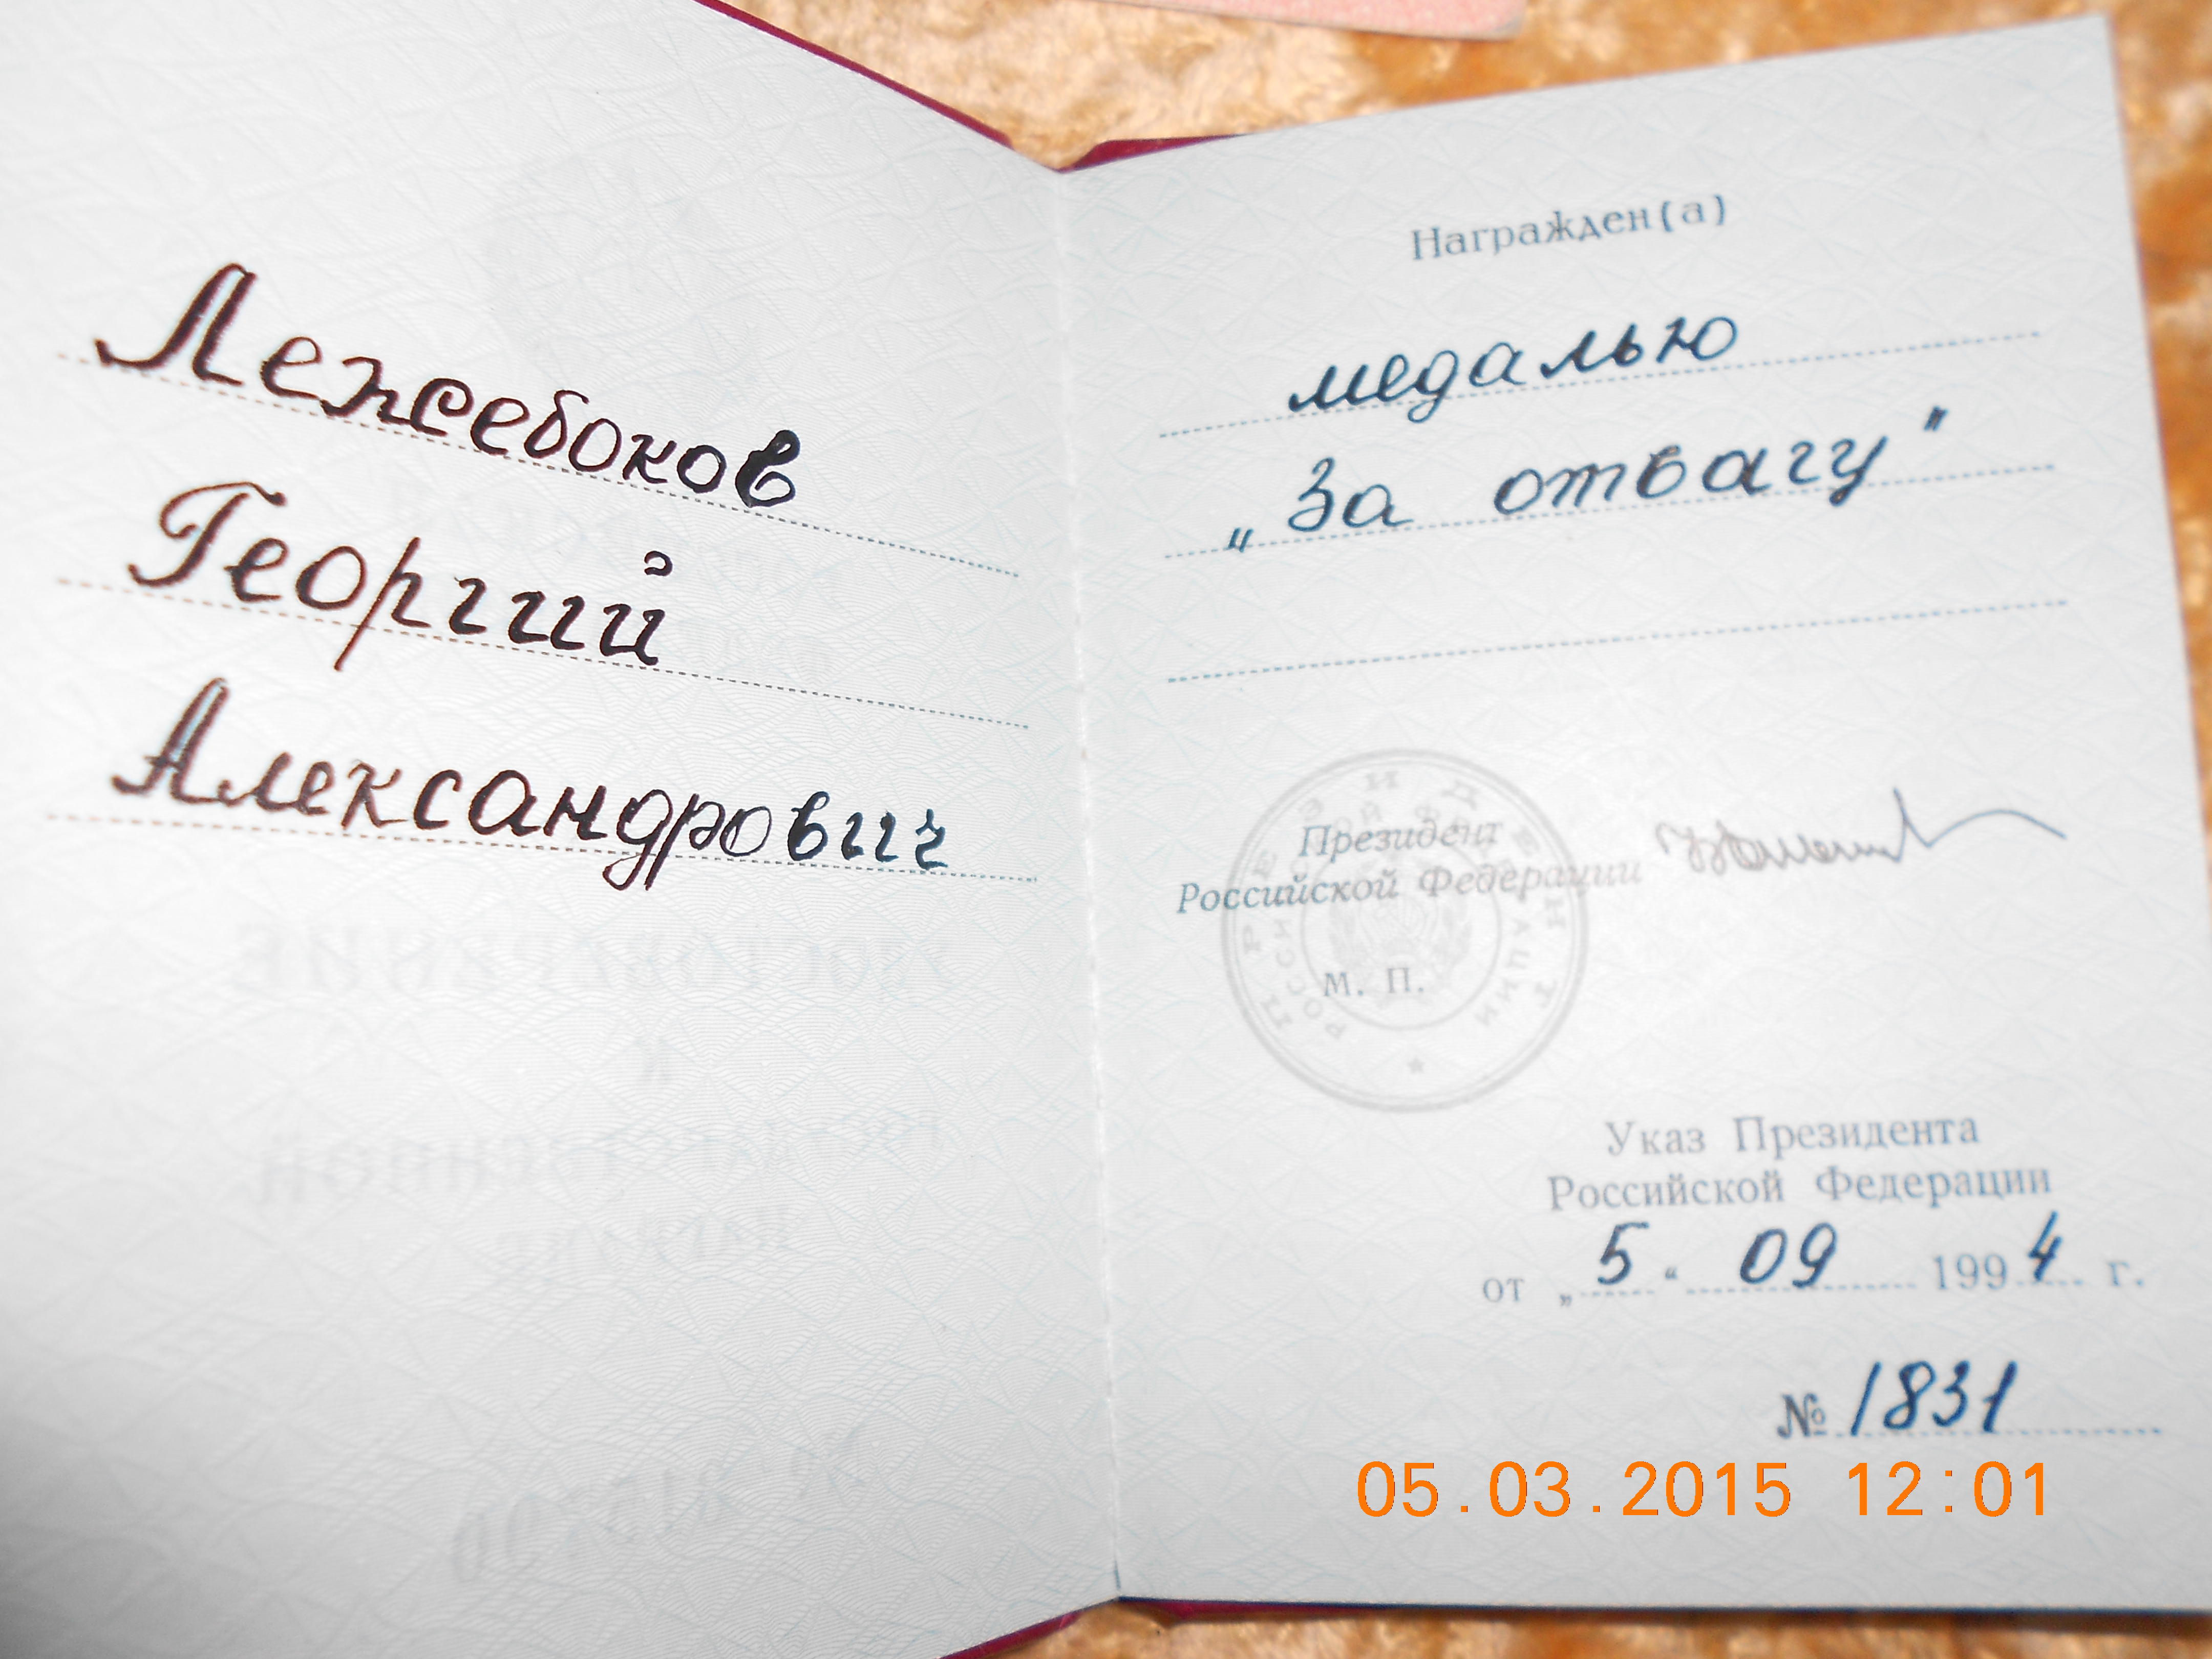 Лежебоков
Георгий
Александрович
Награжден(а)
медалью
„За отвагу"
ПРЕЗИДЕНТ
РОССИЙСКОЙ ФЕДЕРАЦИИ
Президент
Российской Федерации
М. П.
Указ Президента
Российской Федерации
от „5“ 09 1994 г.
№ 1831
05.03.2015 12:01